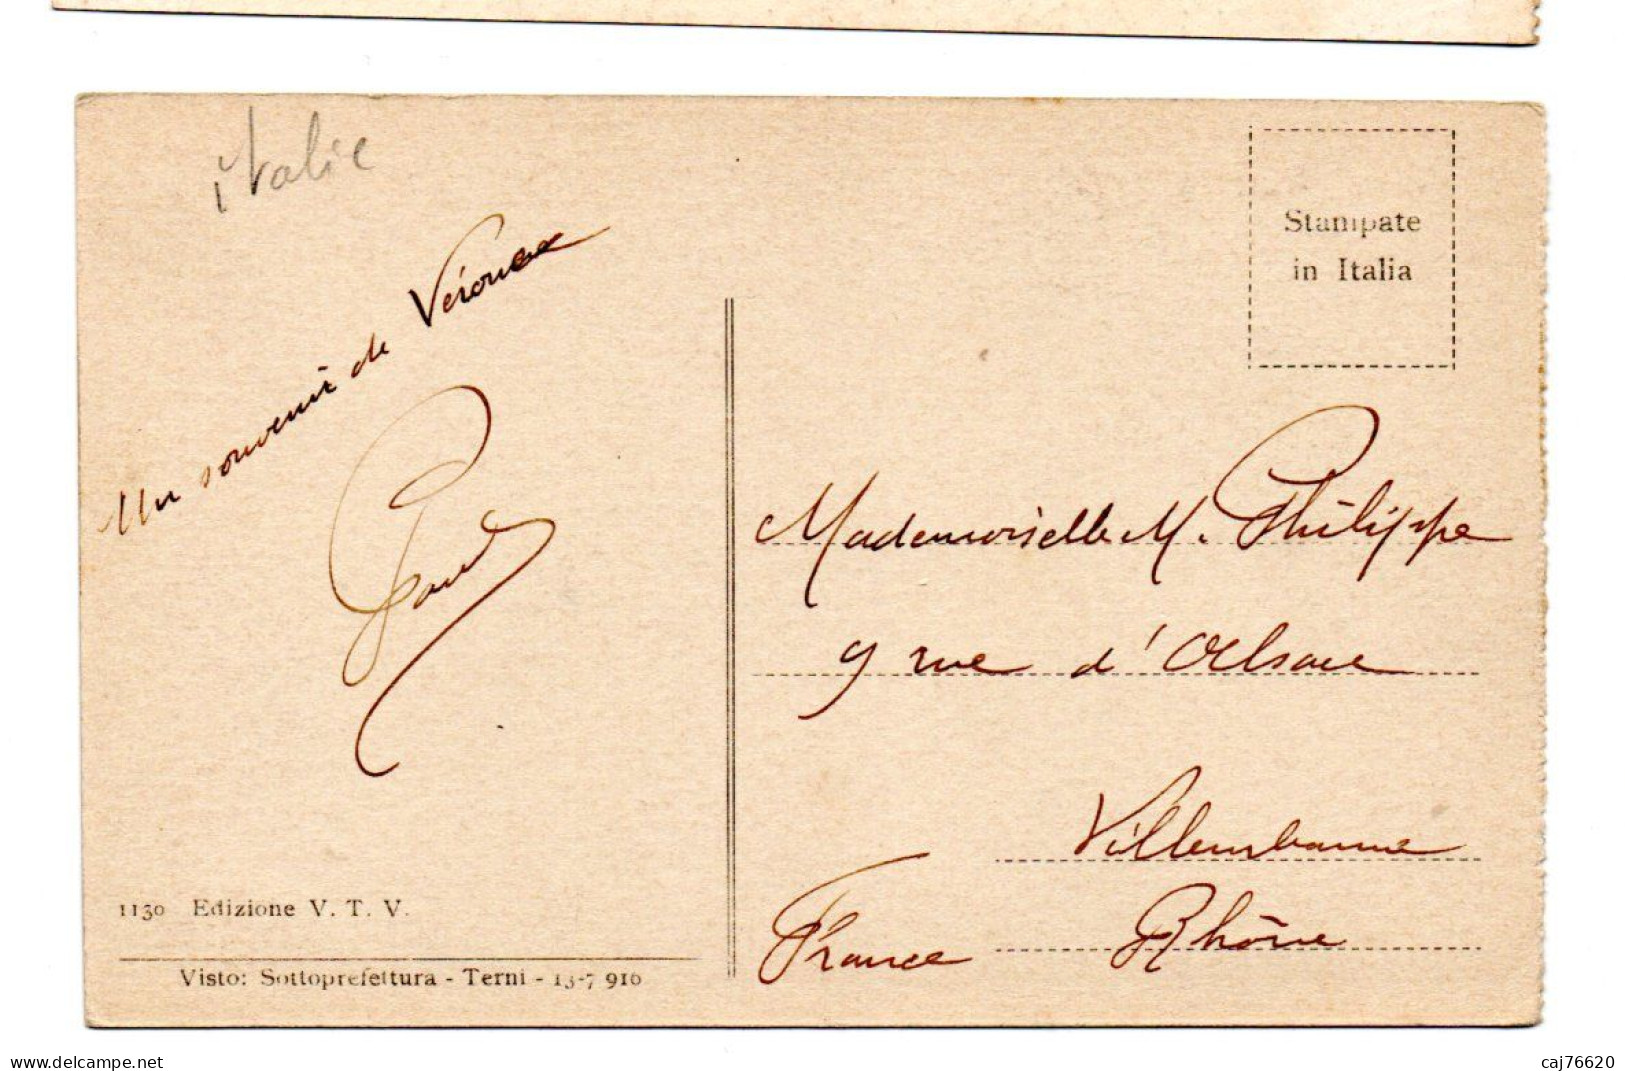 italie
Stampate
in Italia
Un souvenir de Vérone
Mademoiselle M. Philippe
9 rue d'Alsace
Villeurbanne
Rhône
France
1130 Edizione V. T. V.
Visto: Sottoprefettura - Terni - 13-7 916
www.delcampe.net
caj76620